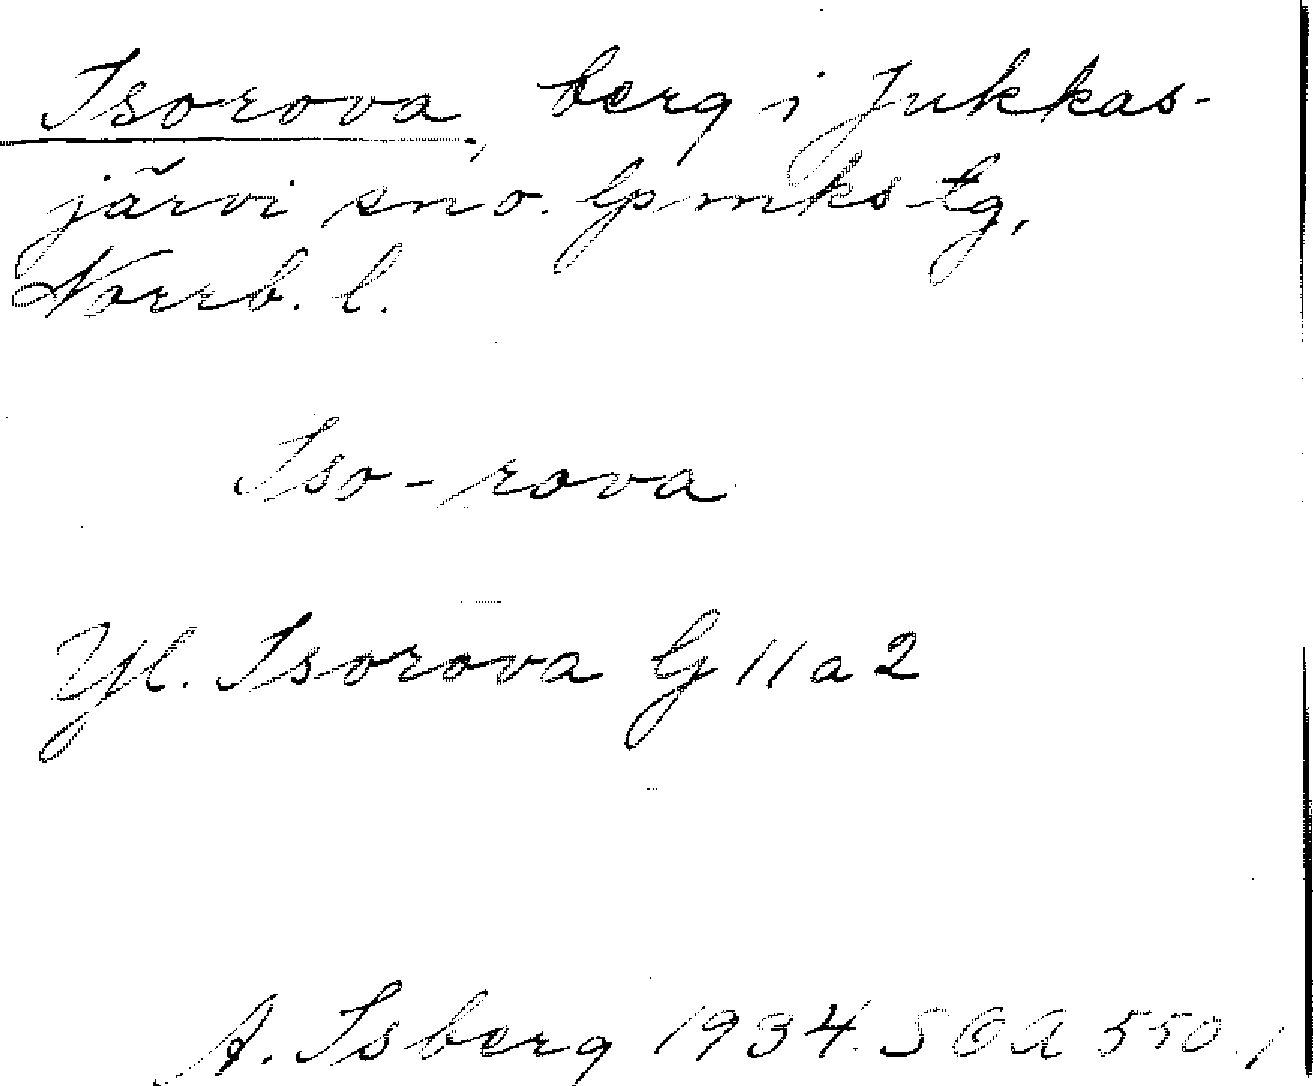 Isorova, berg i Jukkas-
järvi sn o. lpmkstg,
Norrb. l.
Iso-rova
Yl. Isorova G 11 a 2
A. Isberg 1934. SOA 550.1